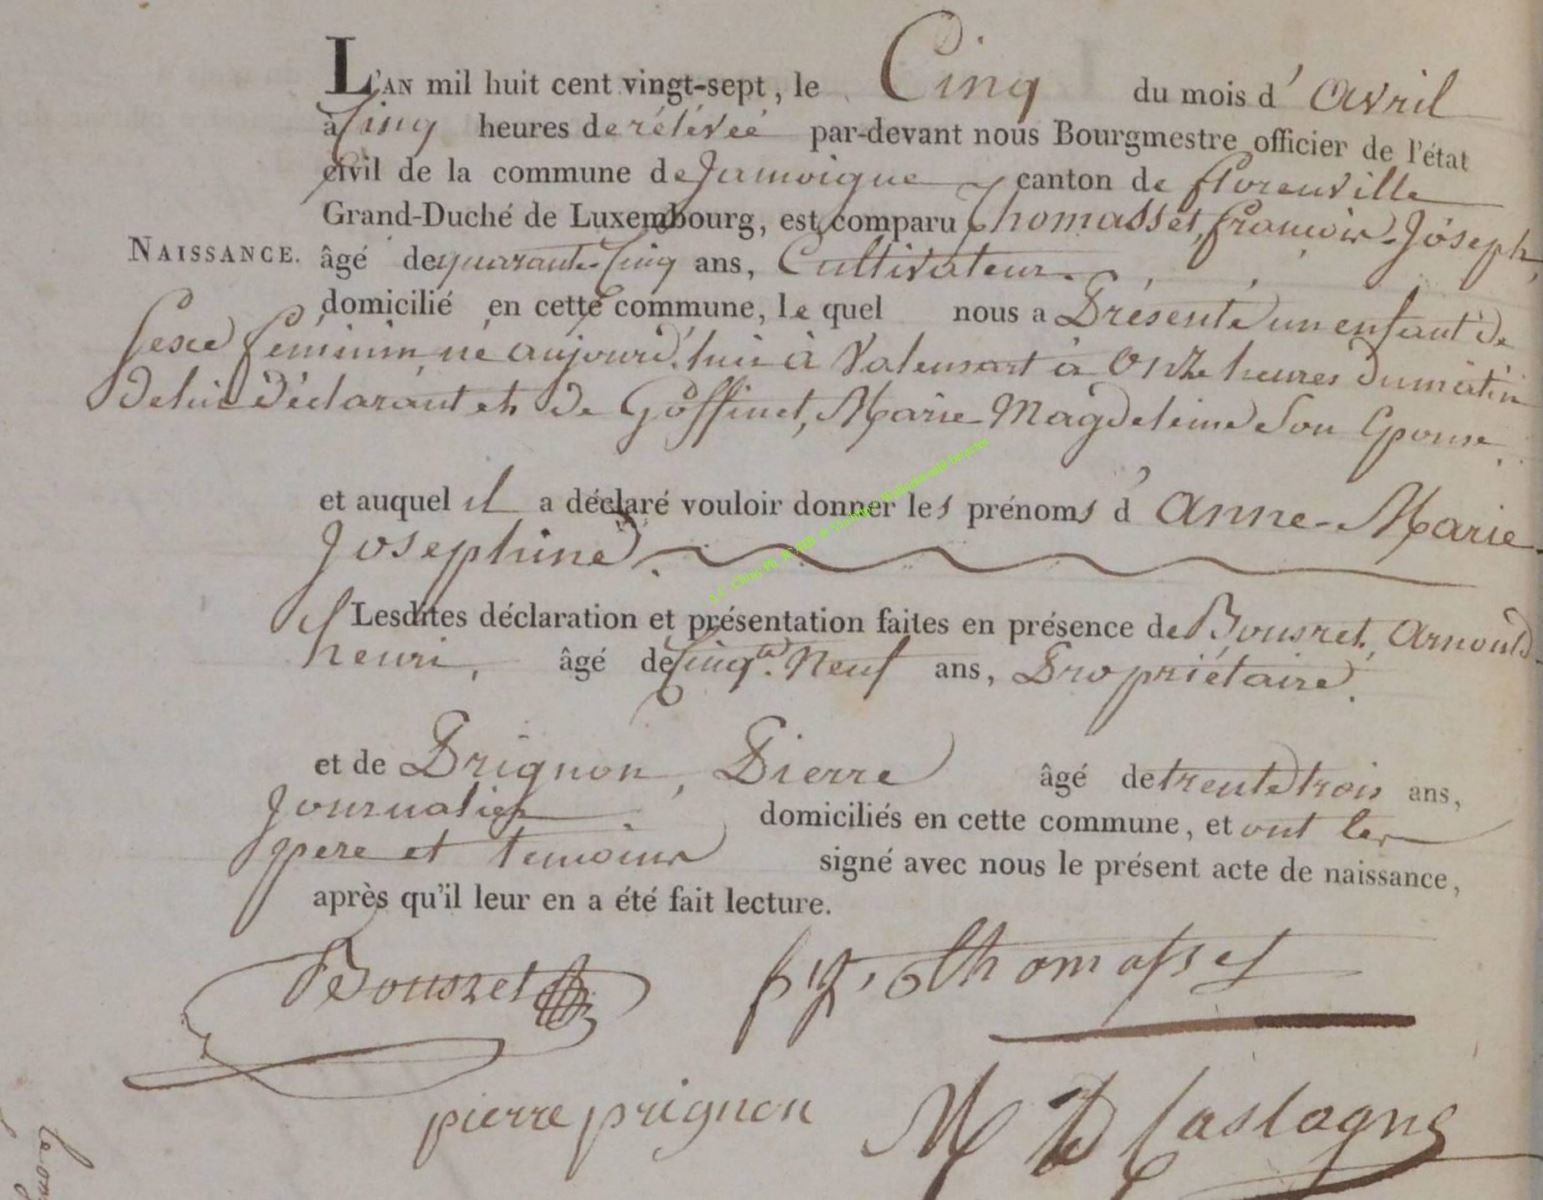 L'AN mil huit cent vingt-sept, le Cinq du mois d'Avril
à Cinq heures de rélévée par-devant nous Bourgmestre officier de l'état
civil de la commune de Jamoigne canton de florenville
Grand-Duché de Luxembourg, est comparu Thomasset, francois-Joseph,
NAISSANCE. âgé de quarante-Cinq ans, Cultivateur.
domicilié en cette commune, le quel nous a Présenté un enfant de
Sexe féminin, né aujourd'hui à Valensart à Onze heures du matin
de lui Déclarant et de Goffinet, Marie Magdeleine Son Epouse.
et auquel il a déclaré vouloir donner les prénoms d'Anne-Marie-
Josephine.
Lesdites déclaration et présentation faites en présence de Bousret, Arnould-
henri, âgé de Cinqte. Neuf ans, Propriétaire.
et de Prignon, Pierre âgé de trente trois ans,
Journalier domiciliés en cette commune, et ont les
pere et temoins signé avec nous le présent acte de naissance,
après qu'il leur en a été fait lecture.
Bousret thomasset
pierre prignon Castagne